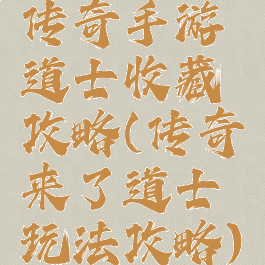 传奇手游
道士收藏
攻略(传奇
来了道士
玩法攻略)